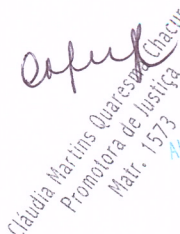 Cláudia Martins Quaresma Chacur
Promotora de Justiça
Matr. 1573